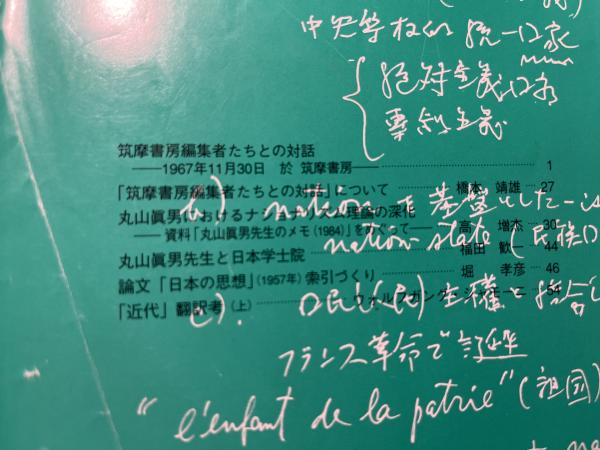 中央集权的 統一国家
絶対主義国家
專制主義
筑摩書房編集者たちとの対話
——1967年11月30日 於 筑摩書房—— 1
「筑摩書房編集者たちとの対話」について 橋本 靖雄 27
b) nation を基盤とした
丸山眞男におけるナショナリズム理論の深化
——資料「丸山眞男先生のメモ(1984)」をめぐって— 高 増杰 30
nation-state (民族
丸山眞男先生と日本学士院 福田 歓一 44
論文「日本の思想」(1957年) 索引づくり 堀 孝彦 46
「近代」翻訳考(上) ウォルフガング・シャモーニ 54
c). (民) 主権 結合
フランス革命で誕生
“l'enfant de la patrie” (祖国)